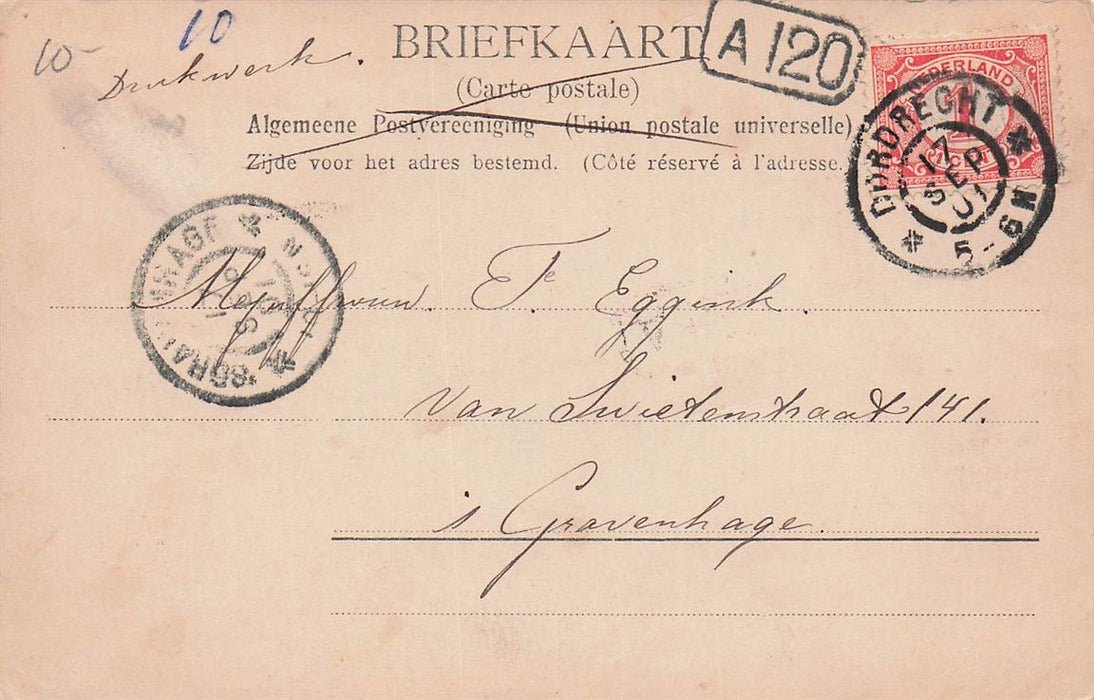 10-
10
Drukwerk.
BRIEFKAART
A 120
(Carte postale)
Algemeene Postvereeniging (Union postale universelle)
Zijde voor het adres bestemd. (Côté réservé à l'adresse.
NEDERLAND
1
CENT
DORDRECHT
17
SEP
01
5-6N
Mejuffrouw F. Eggink
van Swietenstraat 141.
's Gravenhage.